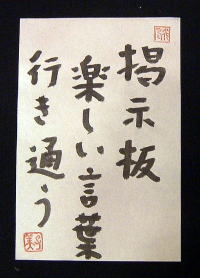 掲示板
楽しい言葉
行き通う